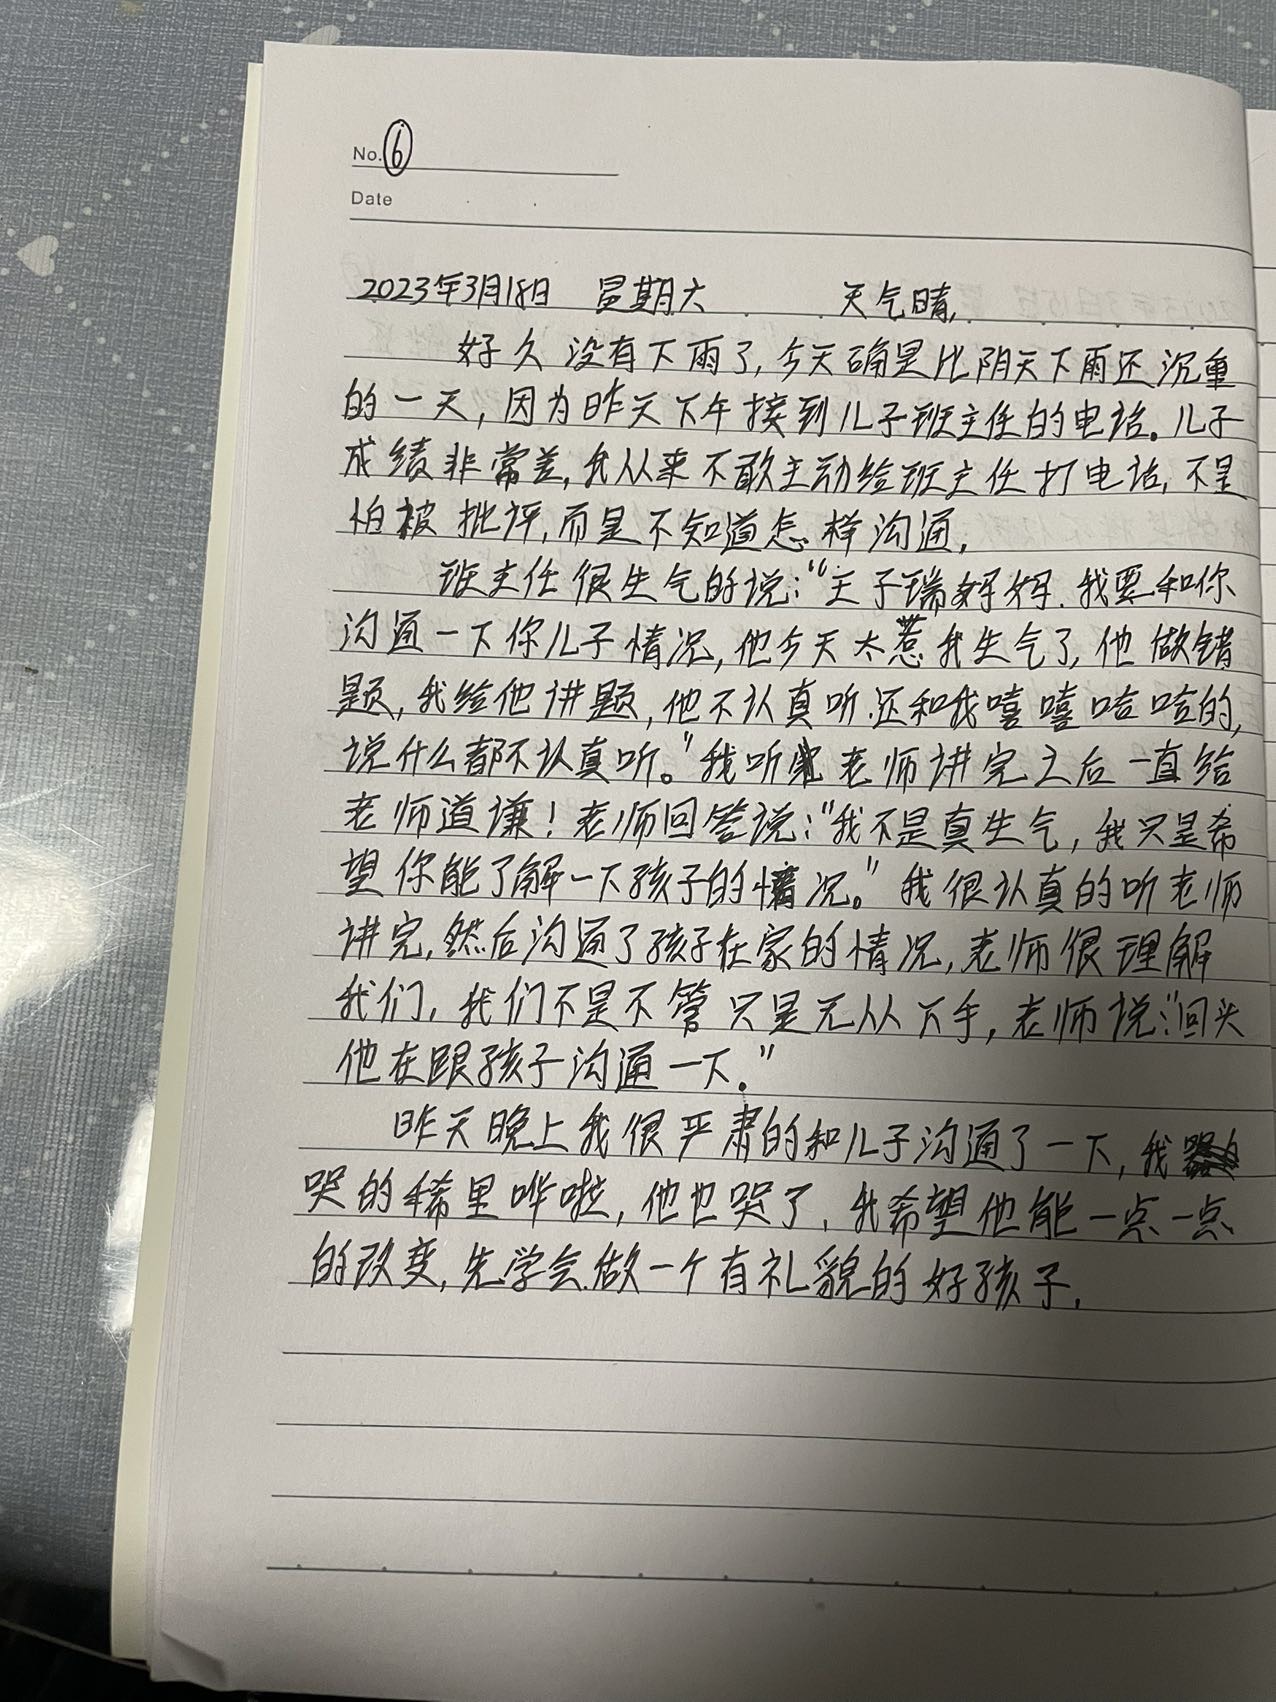 No. ⑥
Date
2023年3月18日 星期六 天气晴.
好久没有下雨了,今天确是比阴天下雨还沉重
的一天,因为昨天下午接到儿子班主任的电话。儿子
成绩非常差,我从来不敢主动给班主任打电话,不是
怕被批评,而是不知道怎样沟通.
班主任很生气的说:“王子瑞妈妈.我要和你
沟通一下你儿子情况,他今天太惹我生气了,他做错
题,我给他讲题,他不认真听.还和我嘻嘻哈哈的,
说什么都不认真听。”我听老师讲完之后一直给
老师道谦!老师回答说:“我不是真生气,我只是希
望你能了解一下孩子的情况。”我很认真的听老师
讲完,然后沟通了孩子在家的情况,老师很理解
我们,我们不是不管只是无从下手,老师说:“回头
他在跟孩子沟通一下.”
昨天晚上我很严肃的和儿子沟通了一下,我
哭的稀里哗啦,他也哭了,我希望他能一点一点
的改变,先学会做一个有礼貌的好孩子.